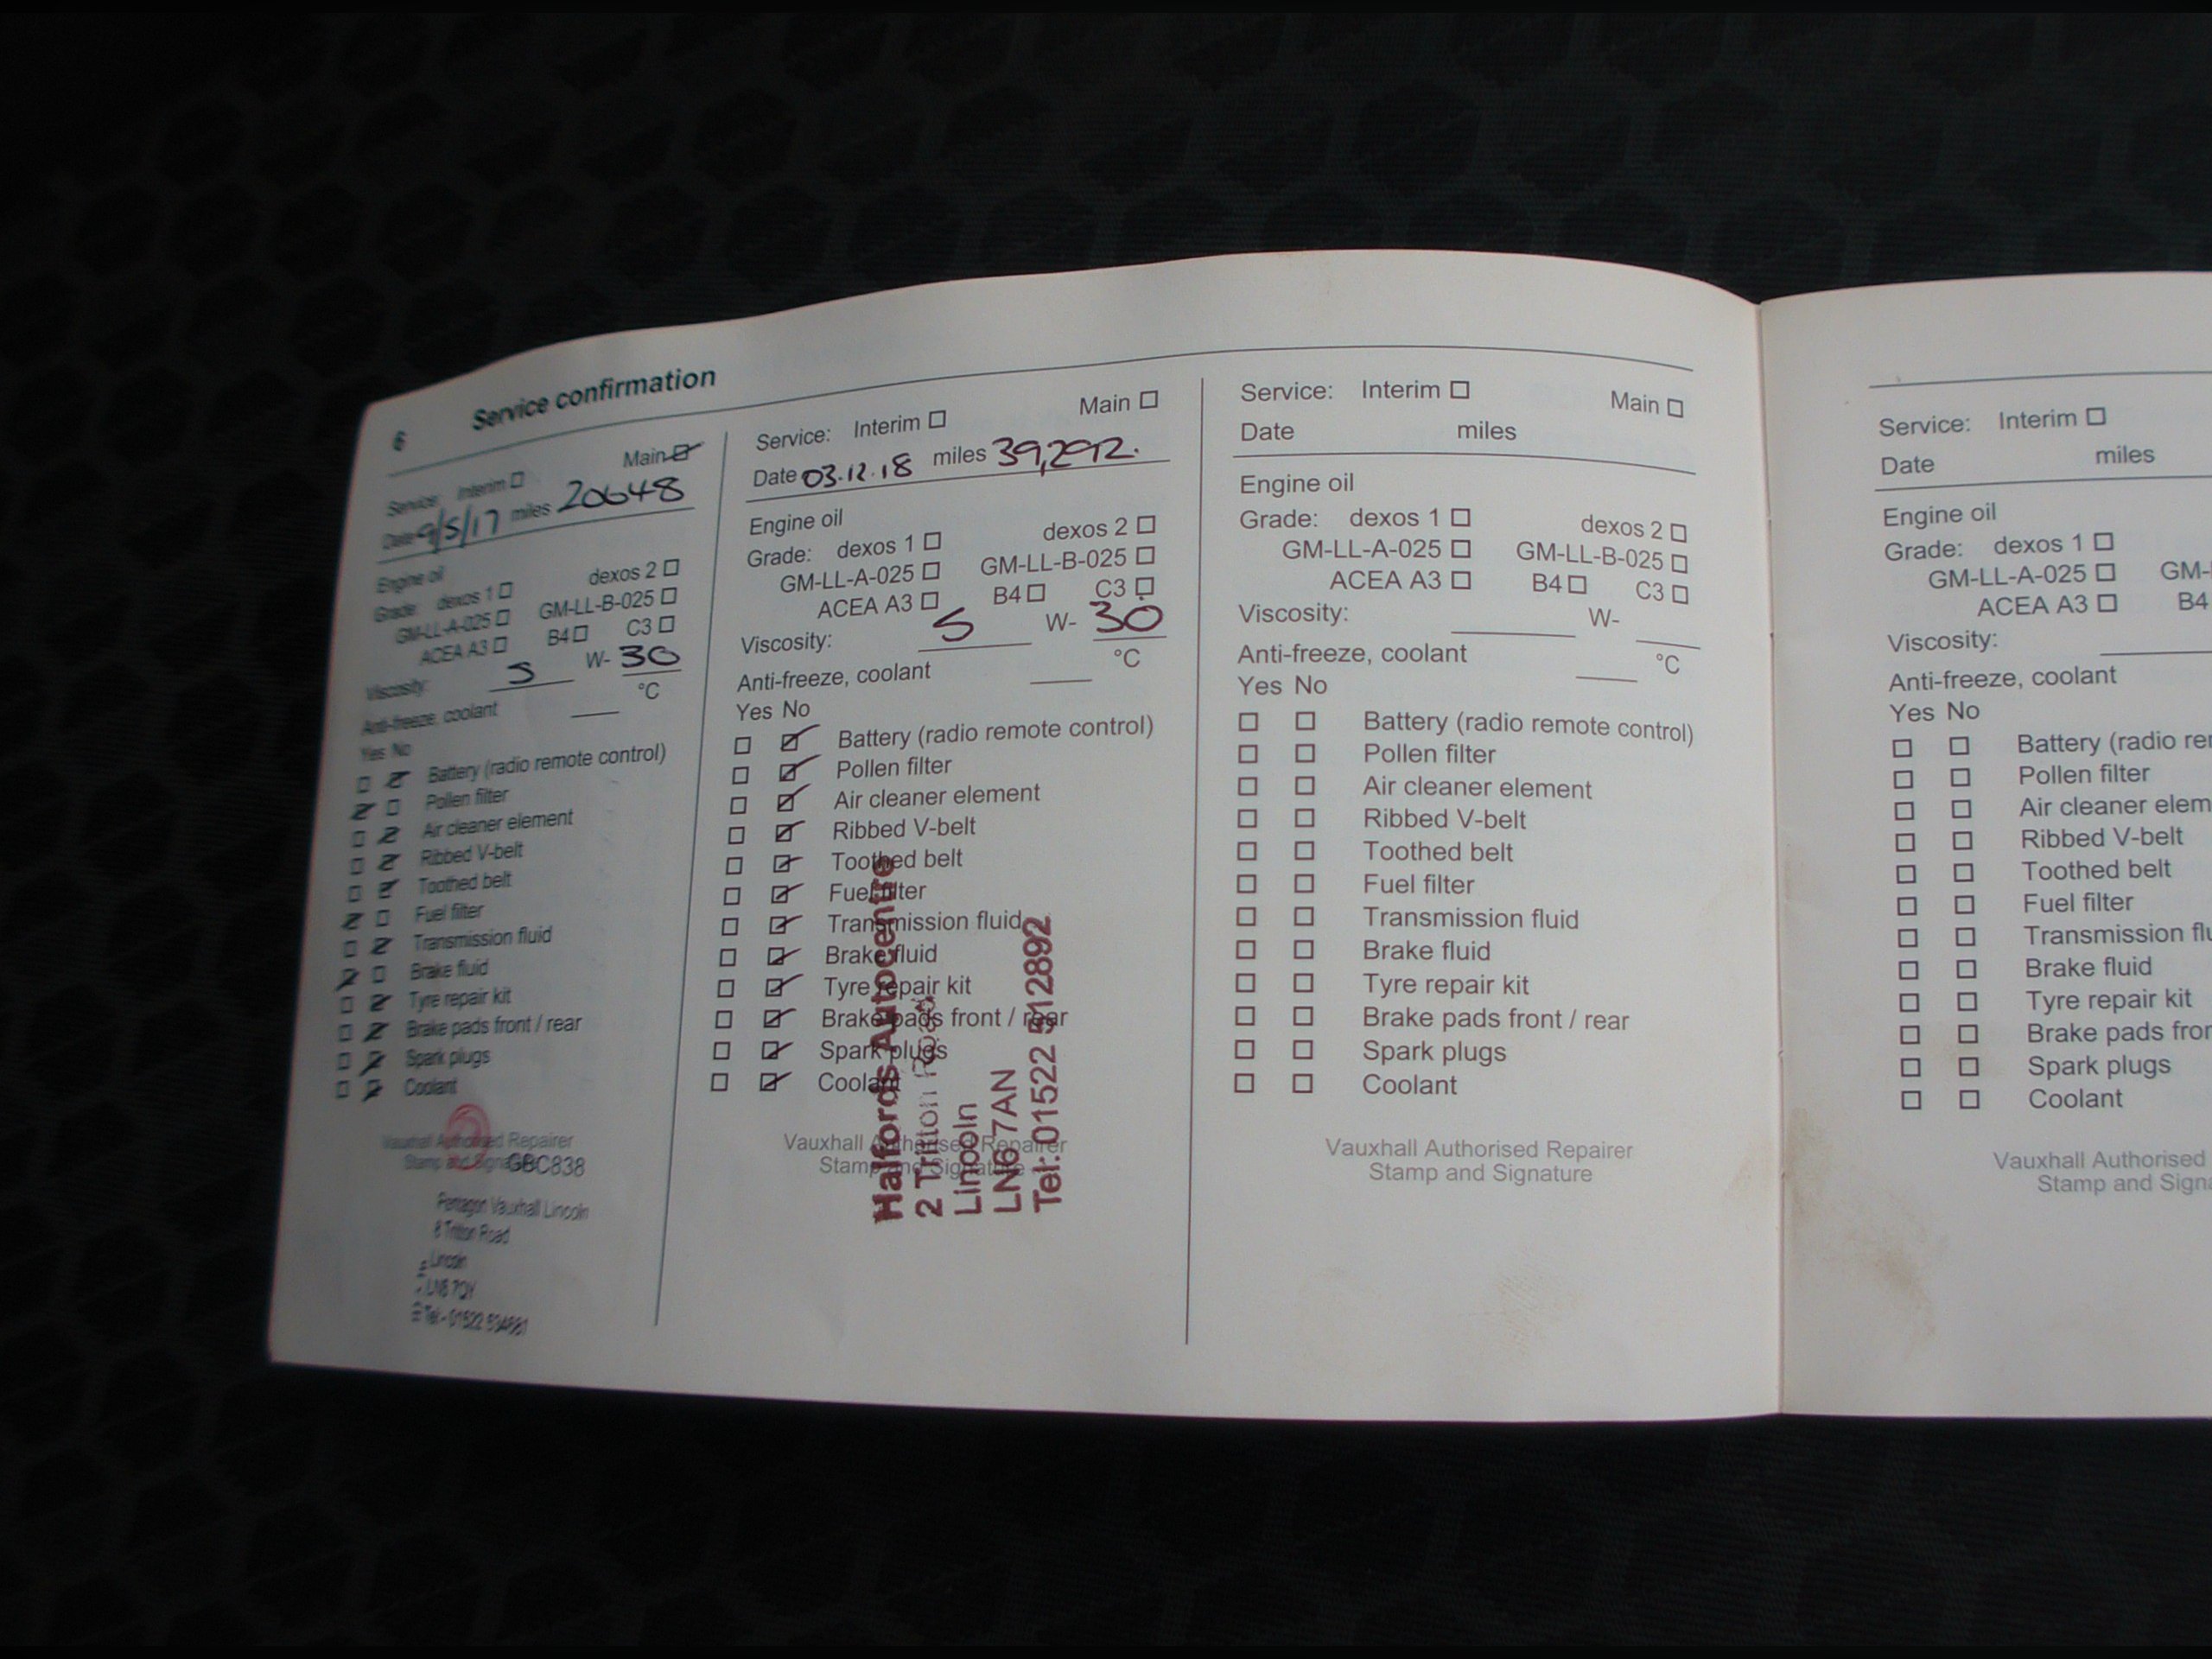 6 Service confirmation
Service: Interim ☐ Main ☑
Date 9/5/17 miles 20648
Engine oil
Grade: dexos 1 ☐ dexos 2 ☐
GM-LL-A-025 ☐ GM-LL-B-025 ☐
ACEA A3 ☐ B4 ☐ C3 ☐
Viscosity: 5 W- 30
Anti-freeze, coolant °C
Yes No
☐ ☑ Battery (radio remote control)
☑ ☐ Pollen filter
☐ ☑ Air cleaner element
☐ ☑ Ribbed V-belt
☐ ☑ Toothed belt
☑ ☐ Fuel filter
☐ ☑ Transmission fluid
☑ ☐ Brake fluid
☐ ☑ Tyre repair kit
☐ ☑ Brake pads front / rear
☐ ☑ Spark plugs
☐ ☑ Coolant
Vauxhall Authorised Repairer
Stamp and Signature
GBC838
Pentagon Vauxhall Lincoln
8 Triton Road
Lincoln
LN6 7QY
Tel - 01522 534681
Service: Interim ☐ Main ☐
Date 03.12.18 miles 39,292.
Engine oil
Grade: dexos 1 ☐ dexos 2 ☐
GM-LL-A-025 ☐ GM-LL-B-025 ☐
ACEA A3 ☐ B4 ☐ C3 ☐
Viscosity: 5 W- 30
Anti-freeze, coolant °C
Yes No
☐ ☑ Battery (radio remote control)
☐ ☑ Pollen filter
☐ ☑ Air cleaner element
☐ ☑ Ribbed V-belt
☐ ☑ Toothed belt
☐ ☑ Fuel filter
☐ ☑ Transmission fluid
☐ ☑ Brake fluid
☐ ☑ Tyre repair kit
☐ ☑ Brake pads front / rear
☐ ☑ Spark plugs
☐ ☑ Coolant
Vauxhall Authorised Repairer
Stamp and Signature
Halfords Autocentre
2 Triton Road
Lincoln
LN6 7AN
Tel: 01522 512892
Service: Interim ☐ Main ☐
Date miles
Engine oil
Grade: dexos 1 ☐ dexos 2 ☐
GM-LL-A-025 ☐ GM-LL-B-025 ☐
ACEA A3 ☐ B4 ☐ C3 ☐
Viscosity: W-
Anti-freeze, coolant °C
Yes No
☐ ☐ Battery (radio remote control)
☐ ☐ Pollen filter
☐ ☐ Air cleaner element
☐ ☐ Ribbed V-belt
☐ ☐ Toothed belt
☐ ☐ Fuel filter
☐ ☐ Transmission fluid
☐ ☐ Brake fluid
☐ ☐ Tyre repair kit
☐ ☐ Brake pads front / rear
☐ ☐ Spark plugs
☐ ☐ Coolant
Vauxhall Authorised Repairer
Stamp and Signature
Service: Interim ☐
Date miles
Engine oil
Grade: dexos 1 ☐
GM-LL-A-025 ☐ GM-
ACEA A3 ☐ B4
Viscosity:
Anti-freeze, coolant
Yes No
☐ ☐ Battery (radio re
☐ ☐ Pollen filter
☐ ☐ Air cleaner elem
☐ ☐ Ribbed V-belt
☐ ☐ Toothed belt
☐ ☐ Fuel filter
☐ ☐ Transmission flu
☐ ☐ Brake fluid
☐ ☐ Tyre repair kit
☐ ☐ Brake pads fron
☐ ☐ Spark plugs
☐ ☐ Coolant
Vauxhall Authorised
Stamp and Signa